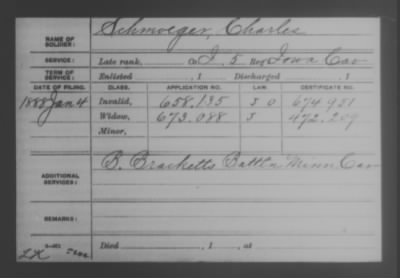 Schmoeger, Charles
NAME OF SOLDIER:
SERVICE: Late rank, Co. I, 5 Reg't Iowa Cav
TERM OF SERVICE: Enlisted , 1 Discharged , 1
DATE OF FILING. CLASS. APPLICATION NO. LAW. CERTIFICATE NO.
1888 Jan 4 Invalid, 658.135 J O 674951
Widow, 673.088 J 472.209
Minor,
B. Bracketts Battln Minn Cav
ADDITIONAL SERVICES:
REMARKS:
Died , 1 , at